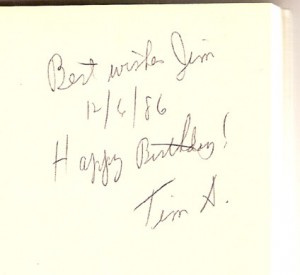 Best wishes Jim
12/6/86
Happy Birthday!
Tim S.